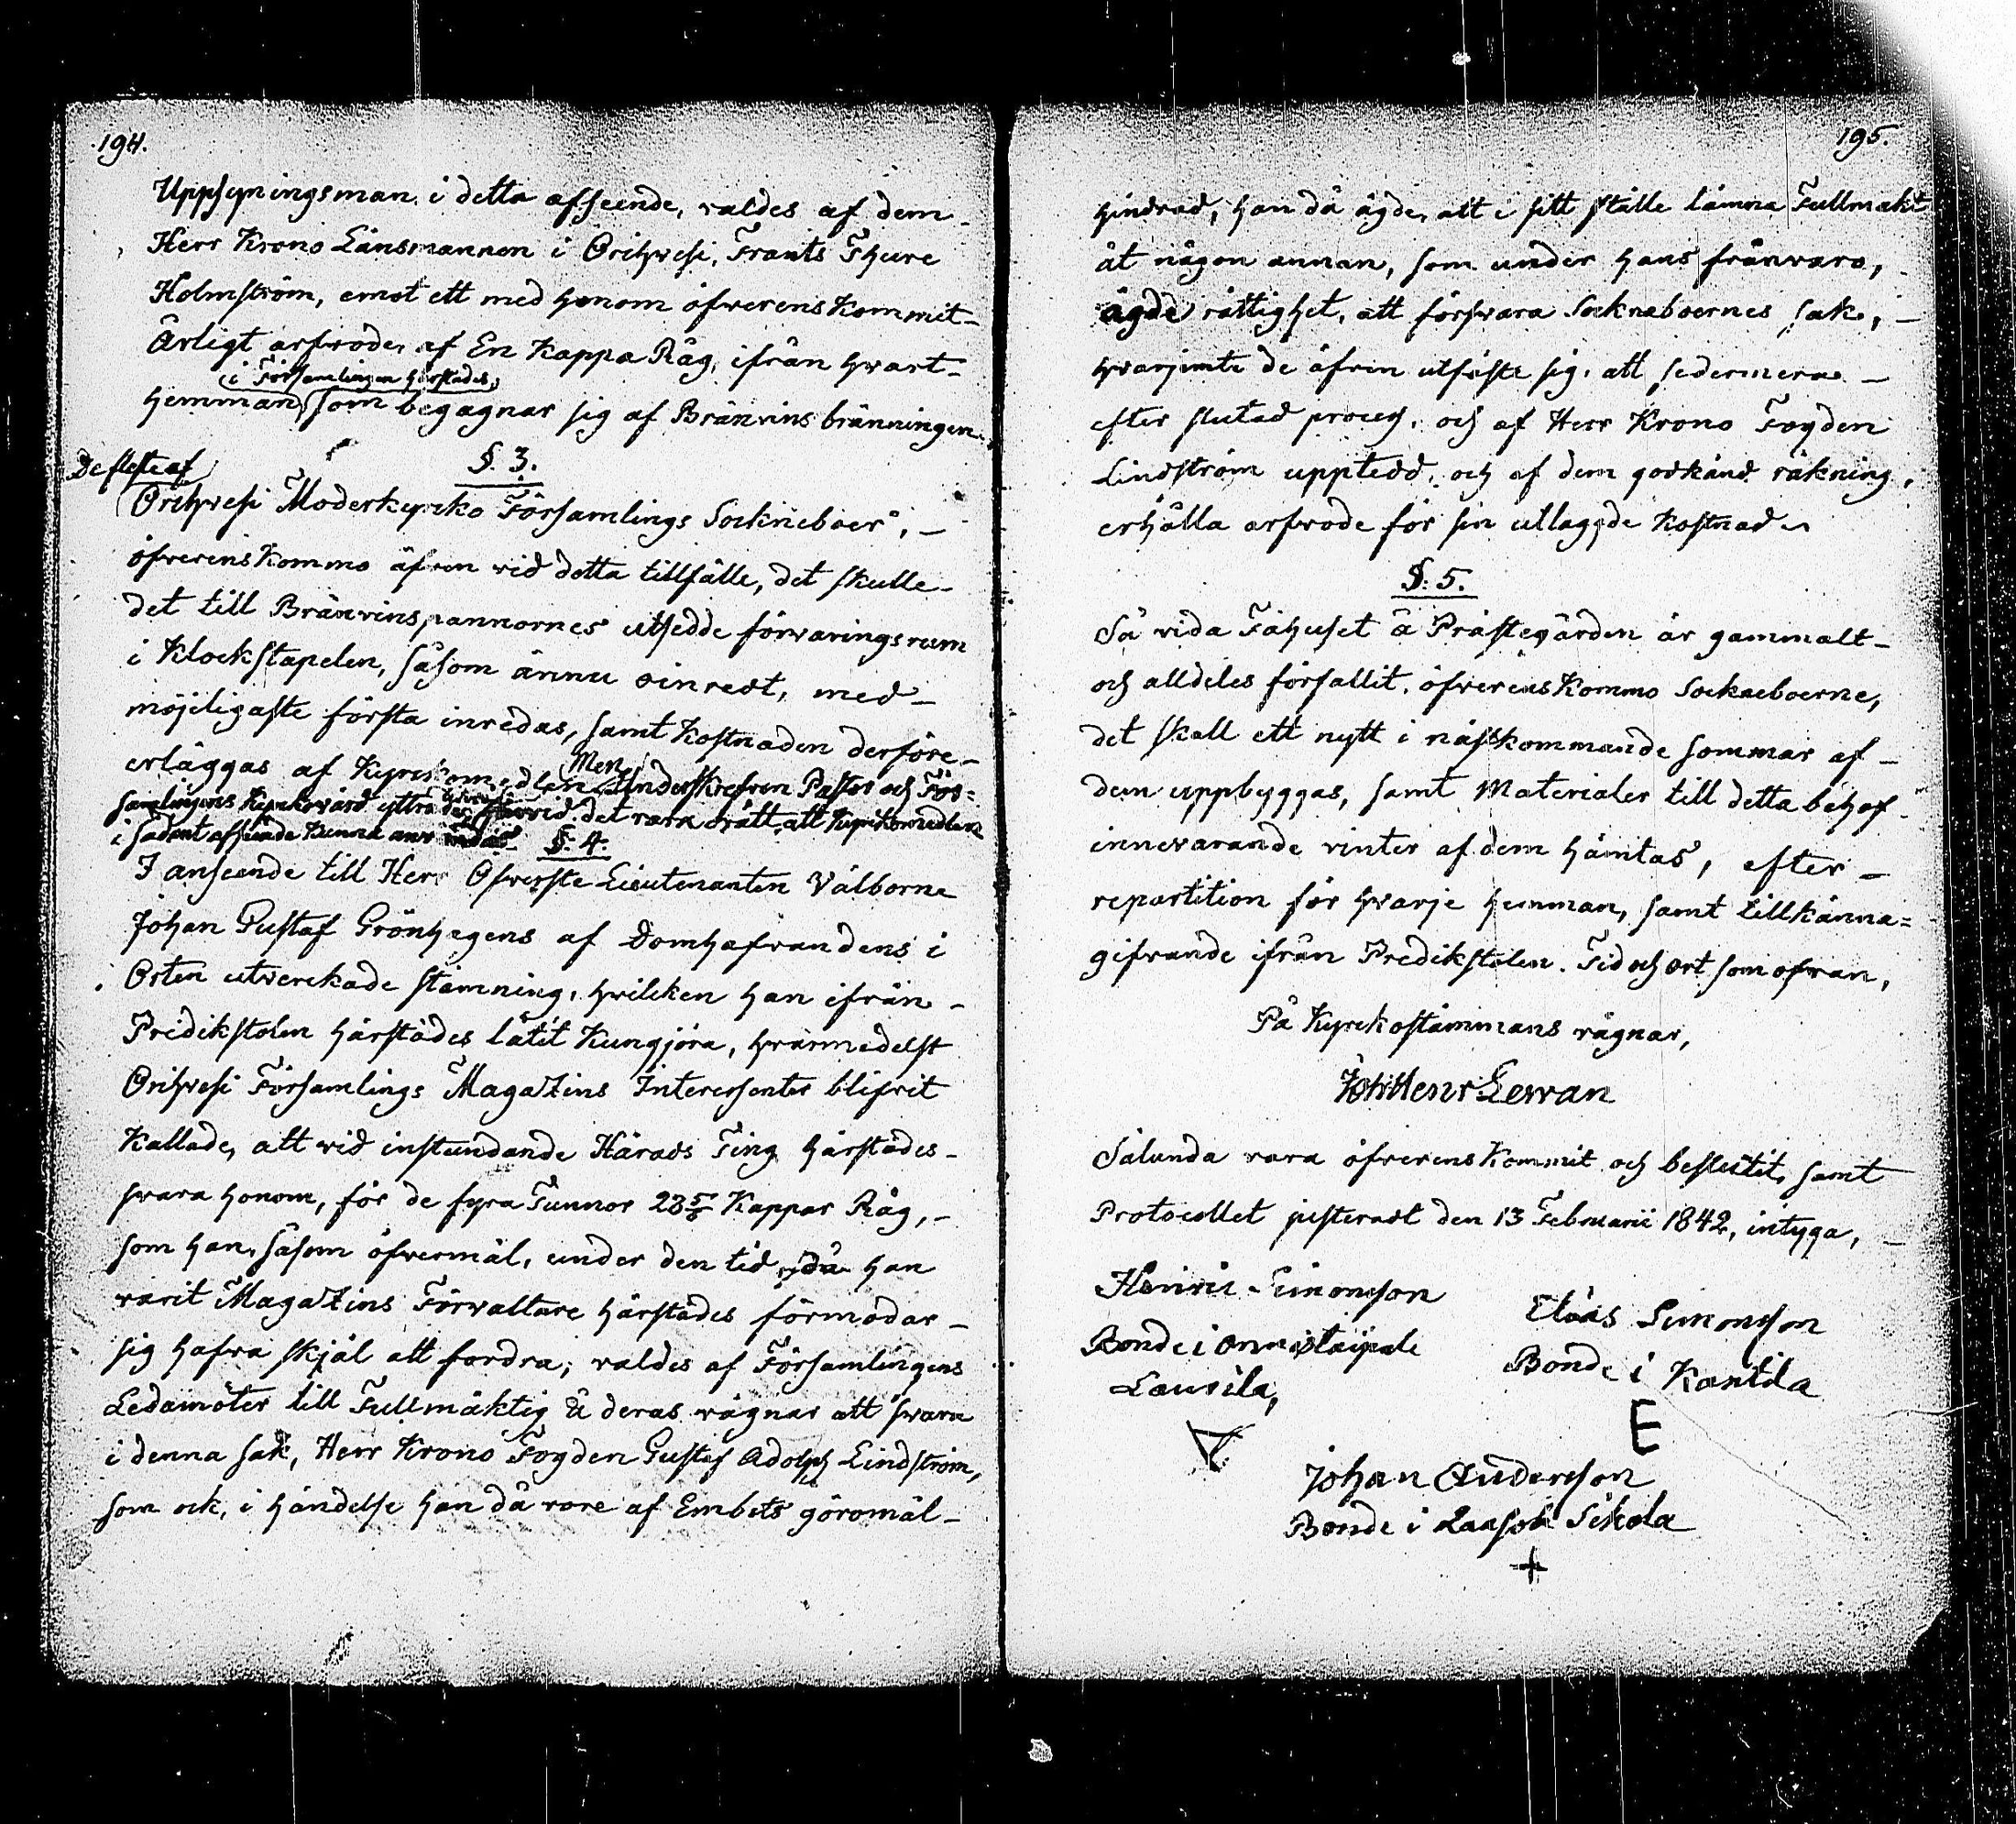 194.
Uppsyningsman i detta afseende, valdes af dem
Herr Krono Länsmannen i Orihvesi, Frants Thure
Holmström, emot ett med honom öfverenskommit
Årligt arfvode, af En Kappa Råg, ifrån hvart
i Församlingen härstädes,
hemman, som begagnar sig af Bränvins bränningen.
§. 3.
De flesta af
Orihvesi Moderkyrko Församlings Sockneboer, _
öfverenskommo äfven vid detta tillfälle, det skulle
det till Bränvinspannornes utsedde förvaringsrum
i Klockstapelen, såsom ännu oinredt, med _
möjeligaste första inredas, samt Kostnaden derföre _
erläggas af Kyrckomedlen Men Underskrefven Pastor och För=
samlingens Kyrkovärd yttrade härvid det vara orätt, att Kyrkomedlen
i sådant afseende kunna användas.
§. 4.
I anseende till Herr Öfverste Lieutenanten Välborne
Johan Gustaf Grönhagens af Domhafvandens i
Orten utverckade stämning, hvilcken han ifrån _
Predikstolen härstädes låtit Kungjöra, hvarmedelst
Orihvesi Församlings Magazins Interessenter blifvit
Kallade, att vid instundande Härads Ting härstädes _
svara honom, för de fyra Tunnor 28 5/8 Kappar Råg, _
som han, såsom öfvermål, under den tid, då han
varit Magazins Förvaltare härstädes förmodar _
sig hafva skjäl att fordra; valdes af Församlingens
Ledamöter till Fullmäktig å deras vägnar att svara
i denna sak, Herr Krono Fogden Gustaf Adolph Lindström,
som ock, i händelse han då vore af Embets göromål _
195.
hindrad, han då ägde, att i sitt ställe lämna Fullmakt
åt någon annan, som under hans frånvaro,
ägde rättighet, att försvara Socknaboernes sak, _
hvarjemte de äfven utfäste sig, att sedermera _
efter slutad process, och af Herr Krono Fogden
Lindström uppteed, och af dem godkänd räkning,
erhålla arfvode för sin utlaggde kostnad.
§. 5.
Så vida Fähuset å Prästegården är gammalt _
och alldeles förfallit, öfverenskommo Sockneboerne,
det skall ett nytt i nästkommande sommar af _
dem uppbyggas, samt Materialer till detta behof
innevarande vinter af dem hämtas, efter _
repartition för hvarje hemman, samt tillkänna=
gifvande ifrån Predikstolen. Tid och ort som ofvan,
På Kyrckostämmans vägnar,
Joh: Henr: Levan
Sålunda vara öfverenskommit och beslutit, samt
Protocollet justeradt den 13 Februarii 1842, intyga, _
Henric Simonsson
Bonde i Onnistaipale
Laurila,
Elias Simonsson
Bonde i Kantila
E
Johan Andersson
Bonde i Sikola
+